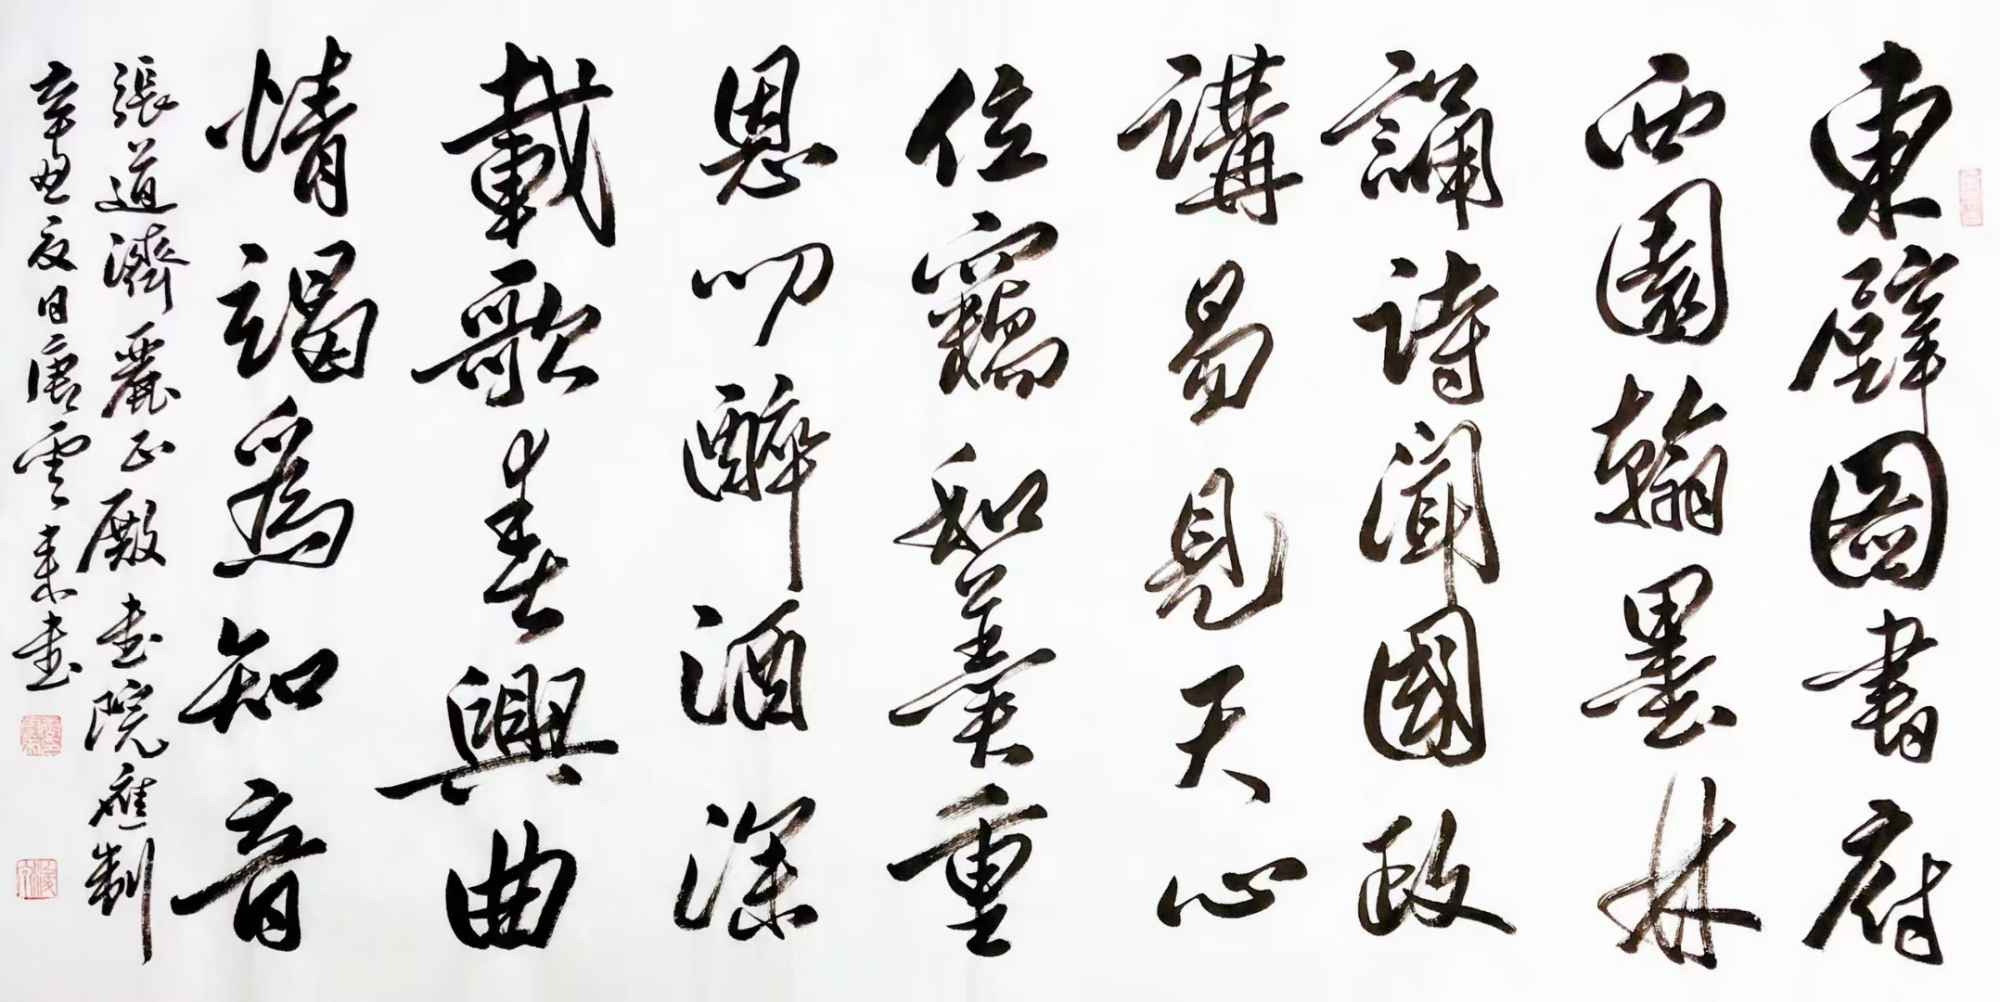 東壁圖書府
西園翰墨林
誦詩聞國政
講易見天心
位竊和羹重
恩叨醉酒深
載歌春興曲
情竭為知音
張道濟麗正殿书院應制
辛丑夏日唐云来书